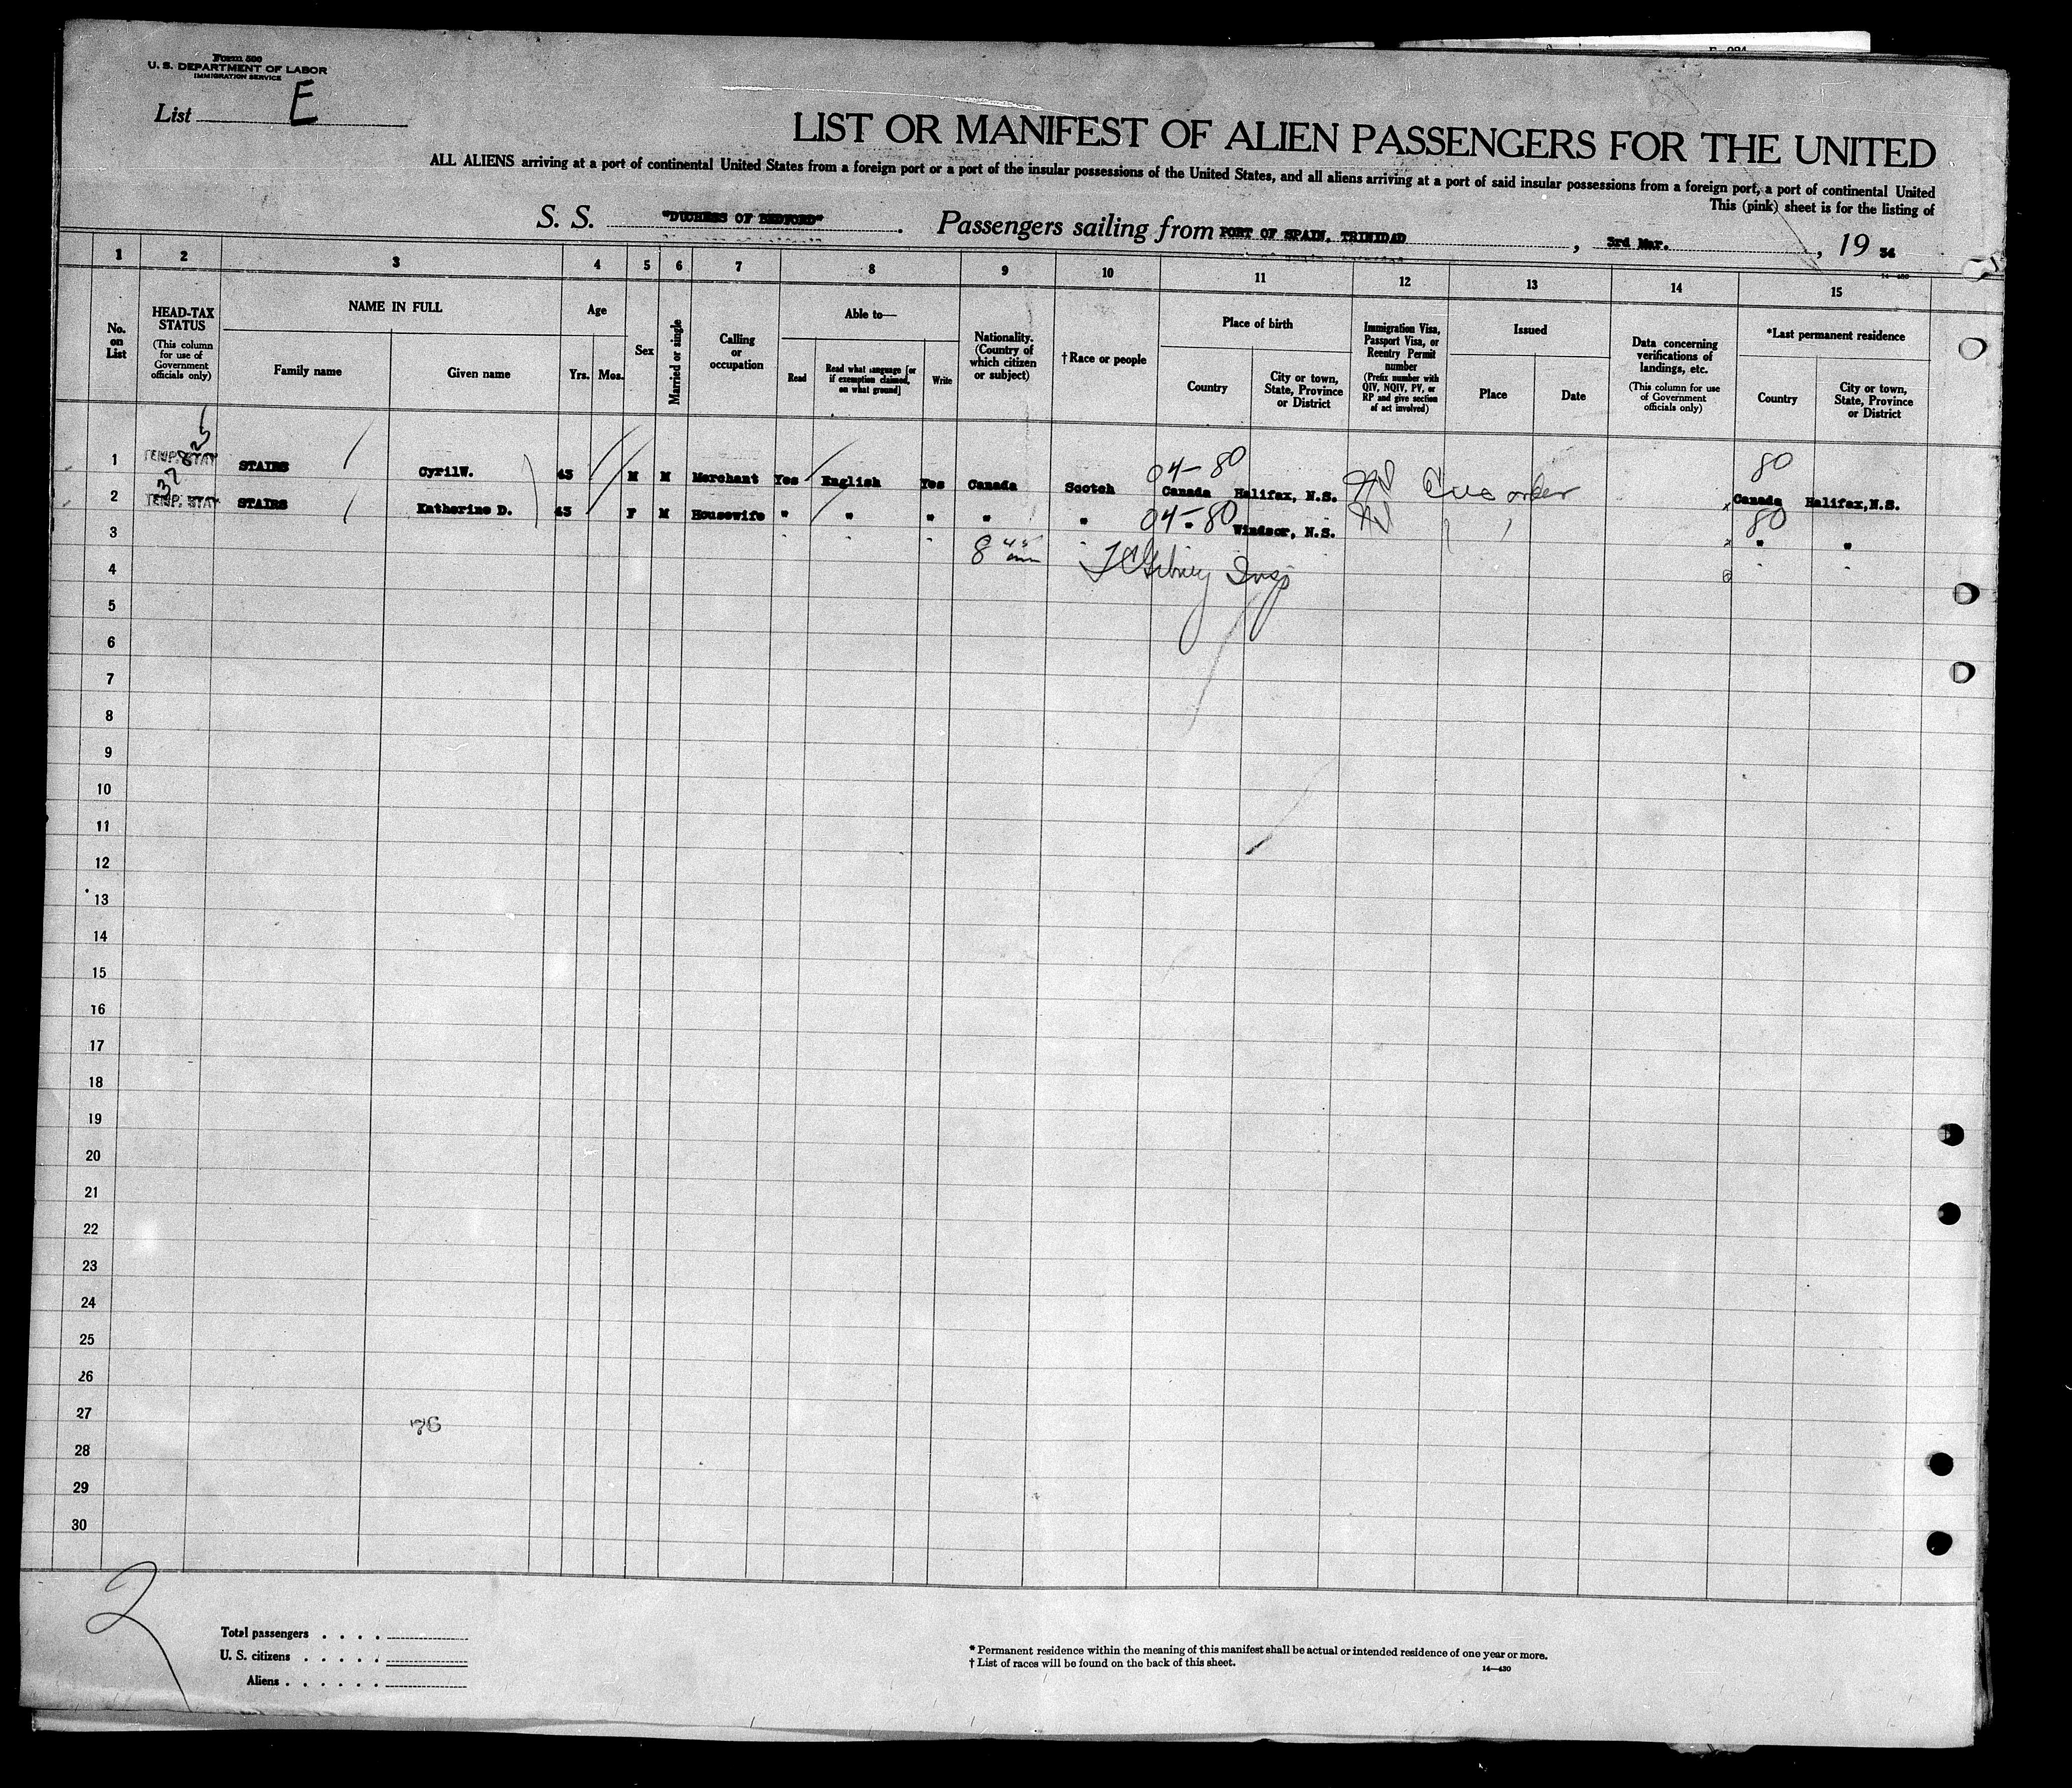 Form 500
U. S. DEPARTMENT OF LABOR
IMMIGRATION SERVICE
List E
LIST OR MANIFEST OF ALIEN PASSENGERS FOR THE UNITED
ALL ALIENS arriving at a port of continental United States from a foreign port or a port of the insular possessions of the United States, and all aliens arriving at a port of said insular possessions from a foreign port, a port of continental United
This (pink) sheet is for the listing of
S. S. "DUCHESS OF BEDFORD". Passengers sailing from PORT OF SPAIN, TRINIDAD, 3rd Mar., 19 34
1 2 3 4 5 6 7 8 9 10 11 12 13 14 15
No. on List
HEAD-TAX STATUS
(This column for use of Government officials only)
NAME IN FULL
Family name
Given name
Age
Yrs. Mos.
Sex
Married or single
Calling or occupation
Able to—
Read
Read what language [or if exemption claimed, on what ground]
Write
Nationality. (Country of which citizen or subject)
†Race or people
Place of birth
Country
City or town, State, Province or District
Immigration Visa, Passport Visa, or Reentry Permit number
(Prefix number with QIV, NQIV, PV, or RP and give section of act involved)
Issued
Place
Date
Data concerning verifications of landings, etc.
(This column for use of Government officials only)
*Last permanent residence
Country
City or town, State, Province or District
04-80 80
1 TEMP. STAY STAIRS CyrilW. 43 M M Merchant Yes English Yes Canada Scotch Canada Halifax, N.S. Canada Halifax,N.S.
04-80 80
2 TEMP. STAY STAIRS Katherine D. 43 F M Housewife " " " " " " Windsor, N.S. " "
3
4
5
6
7
8
9
10
11
12
13
14
15
16
17
18
19
20
21
22
23
24
25
26
27
76
28
29
30
2
Total passengers . . . .
U. S. citizens . . . . .
Aliens . . . . . .
* Permanent residence within the meaning of this manifest shall be actual or intended residence of one year or more.
† List of races will be found on the back of this sheet.
14—430